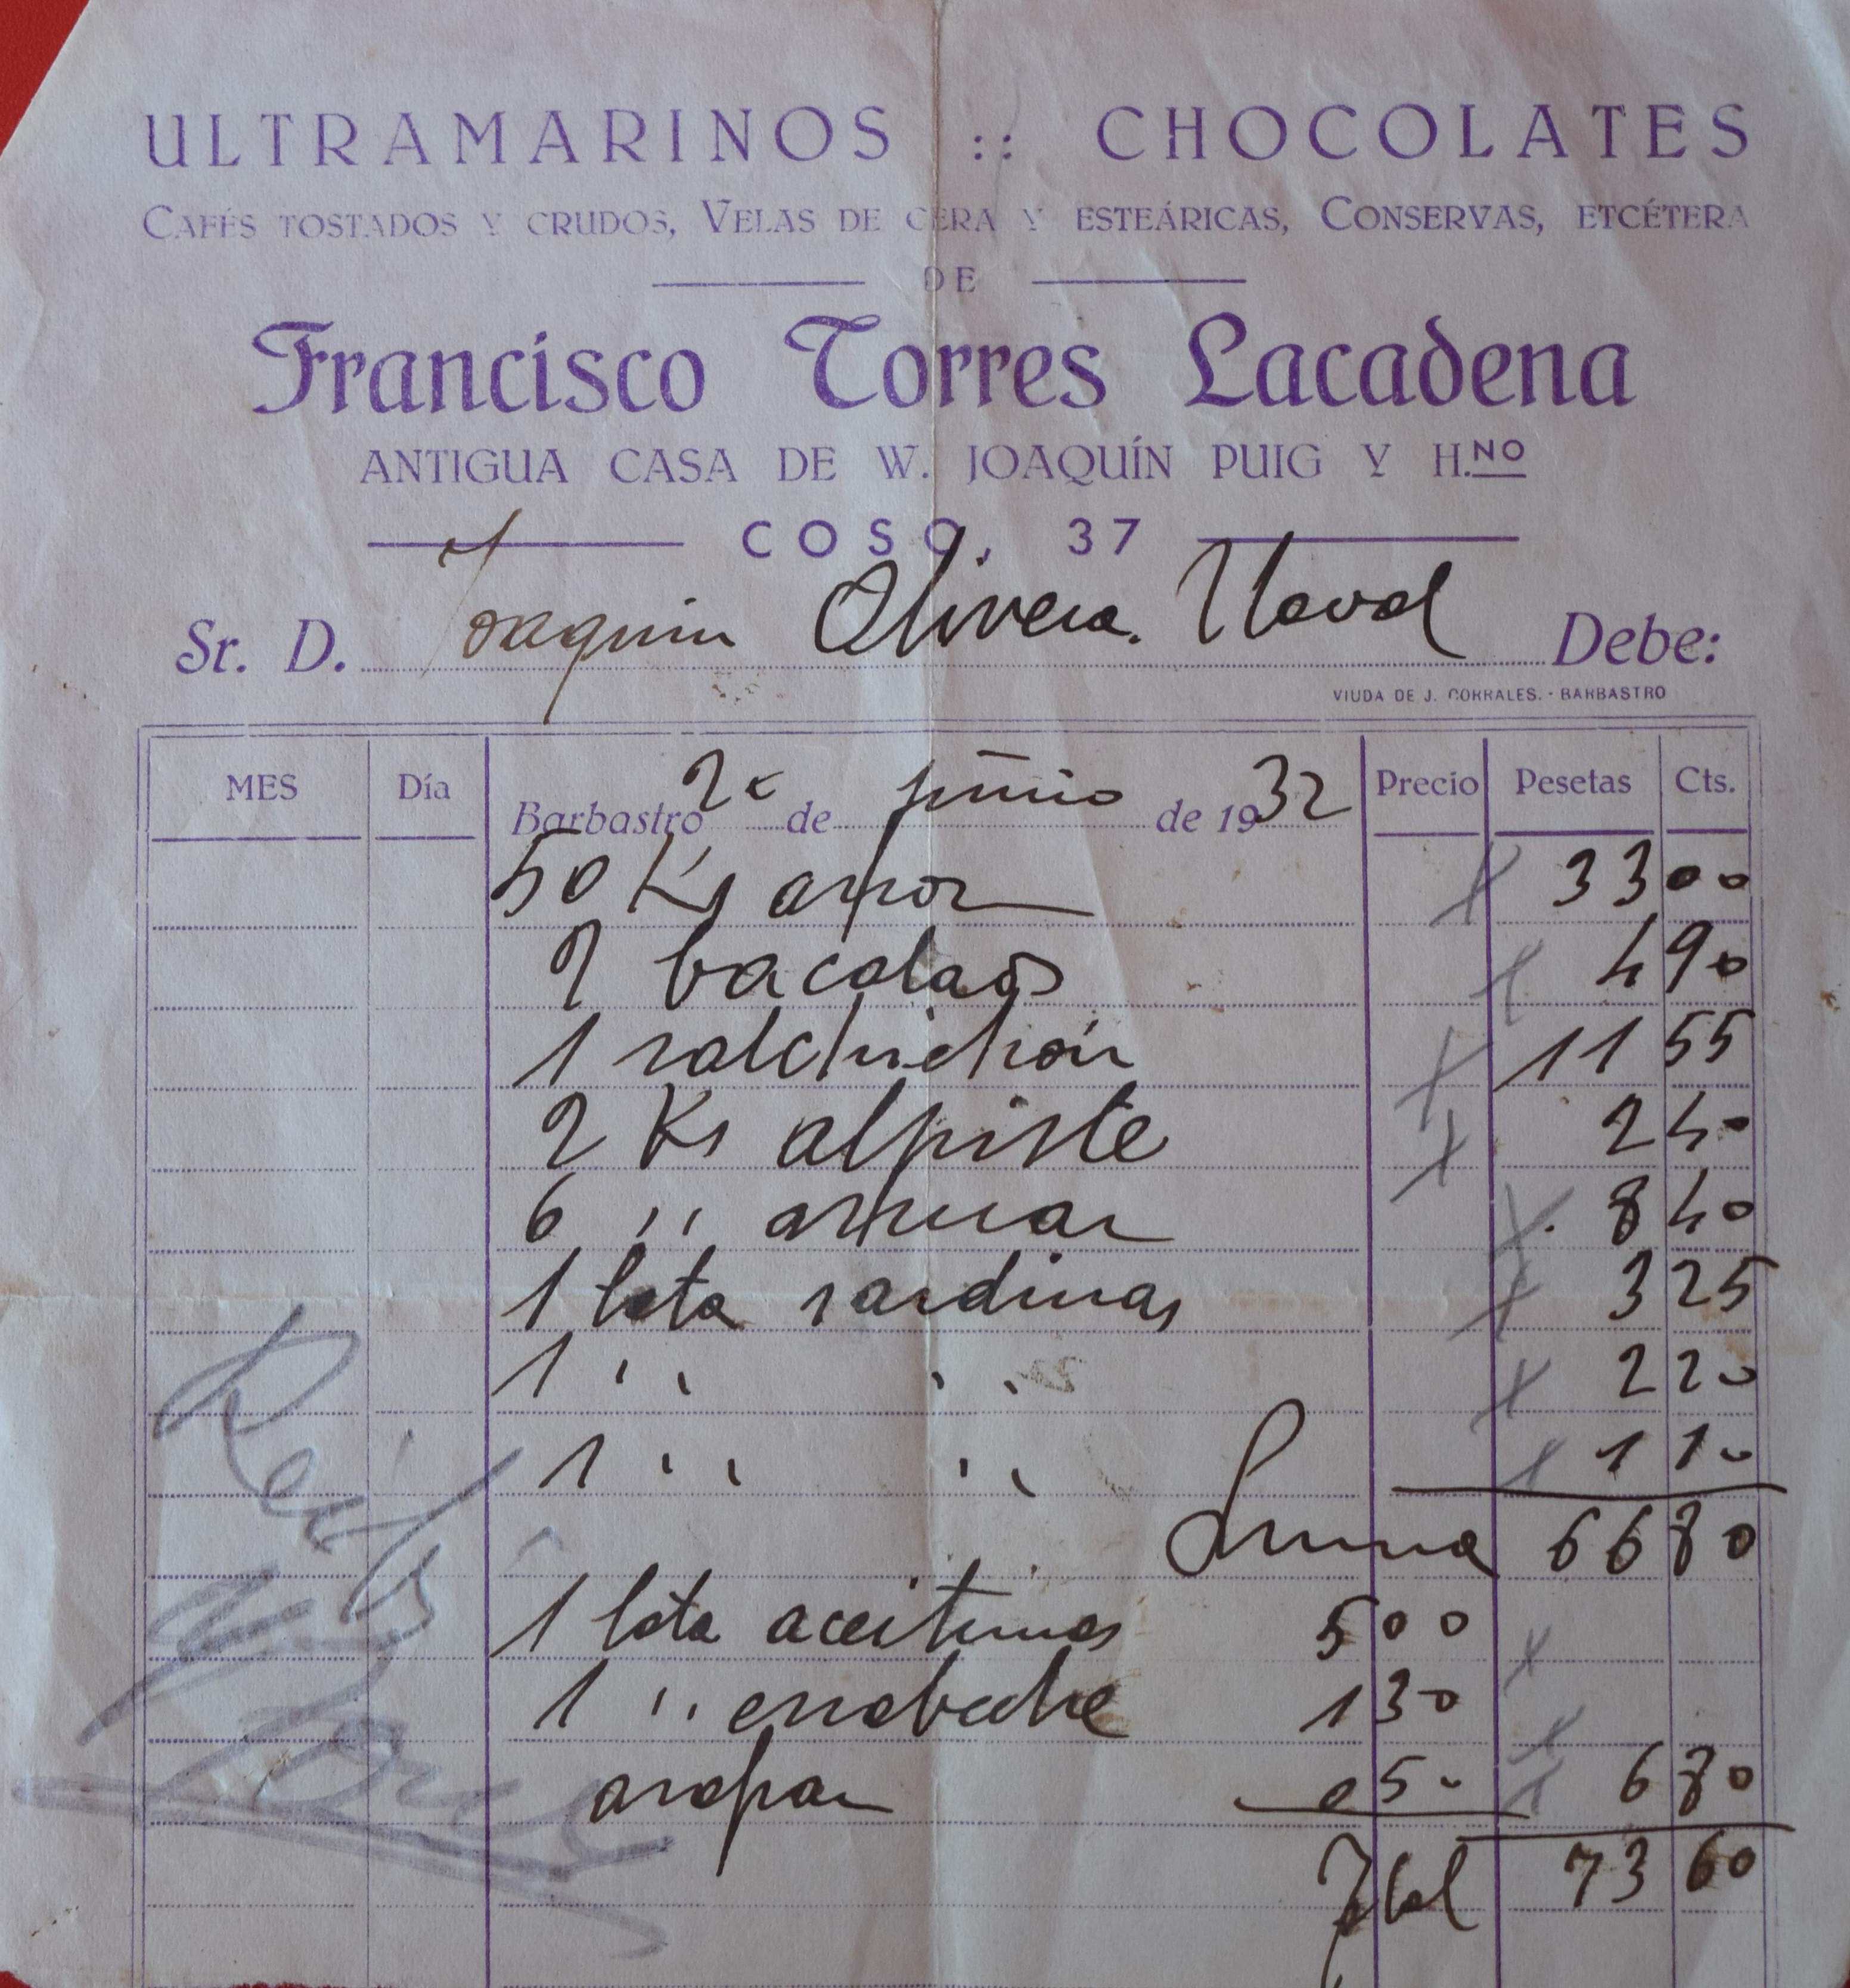 ULTRAMARINOS :: CHOCOLATES
CAFÉS TOSTADOS Y CRUDOS, VELAS DE CERA Y ESTEÁRICAS, CONSERVAS, ETCÉTERA
DE
Francisco Torres Lacadena
ANTIGUA CASA DE W. JOAQUÍN PUIG Y H.NO
COSO, 37
Sr. D. Joaquin Olivera. Naval Debe:
VIUDA DE J. CORRALES. - BARBASTRO
MES Día Barbastro de junio de 1932 Precio Pesetas Cts.
50 Ks arroz 33 00
2 bacalaos 4 90
1 salchichón 11 55
2 Ks alpiste 2 40
6 " azucar 8 40
1 lata sardinas 3 25
1 " " 2 20
1 " " 1 10
Suma 66 80
1 lata aceitunas 5 00
1 " escabeche 1 30
0 50 6 80
Total 73 60
Recibi
Torres